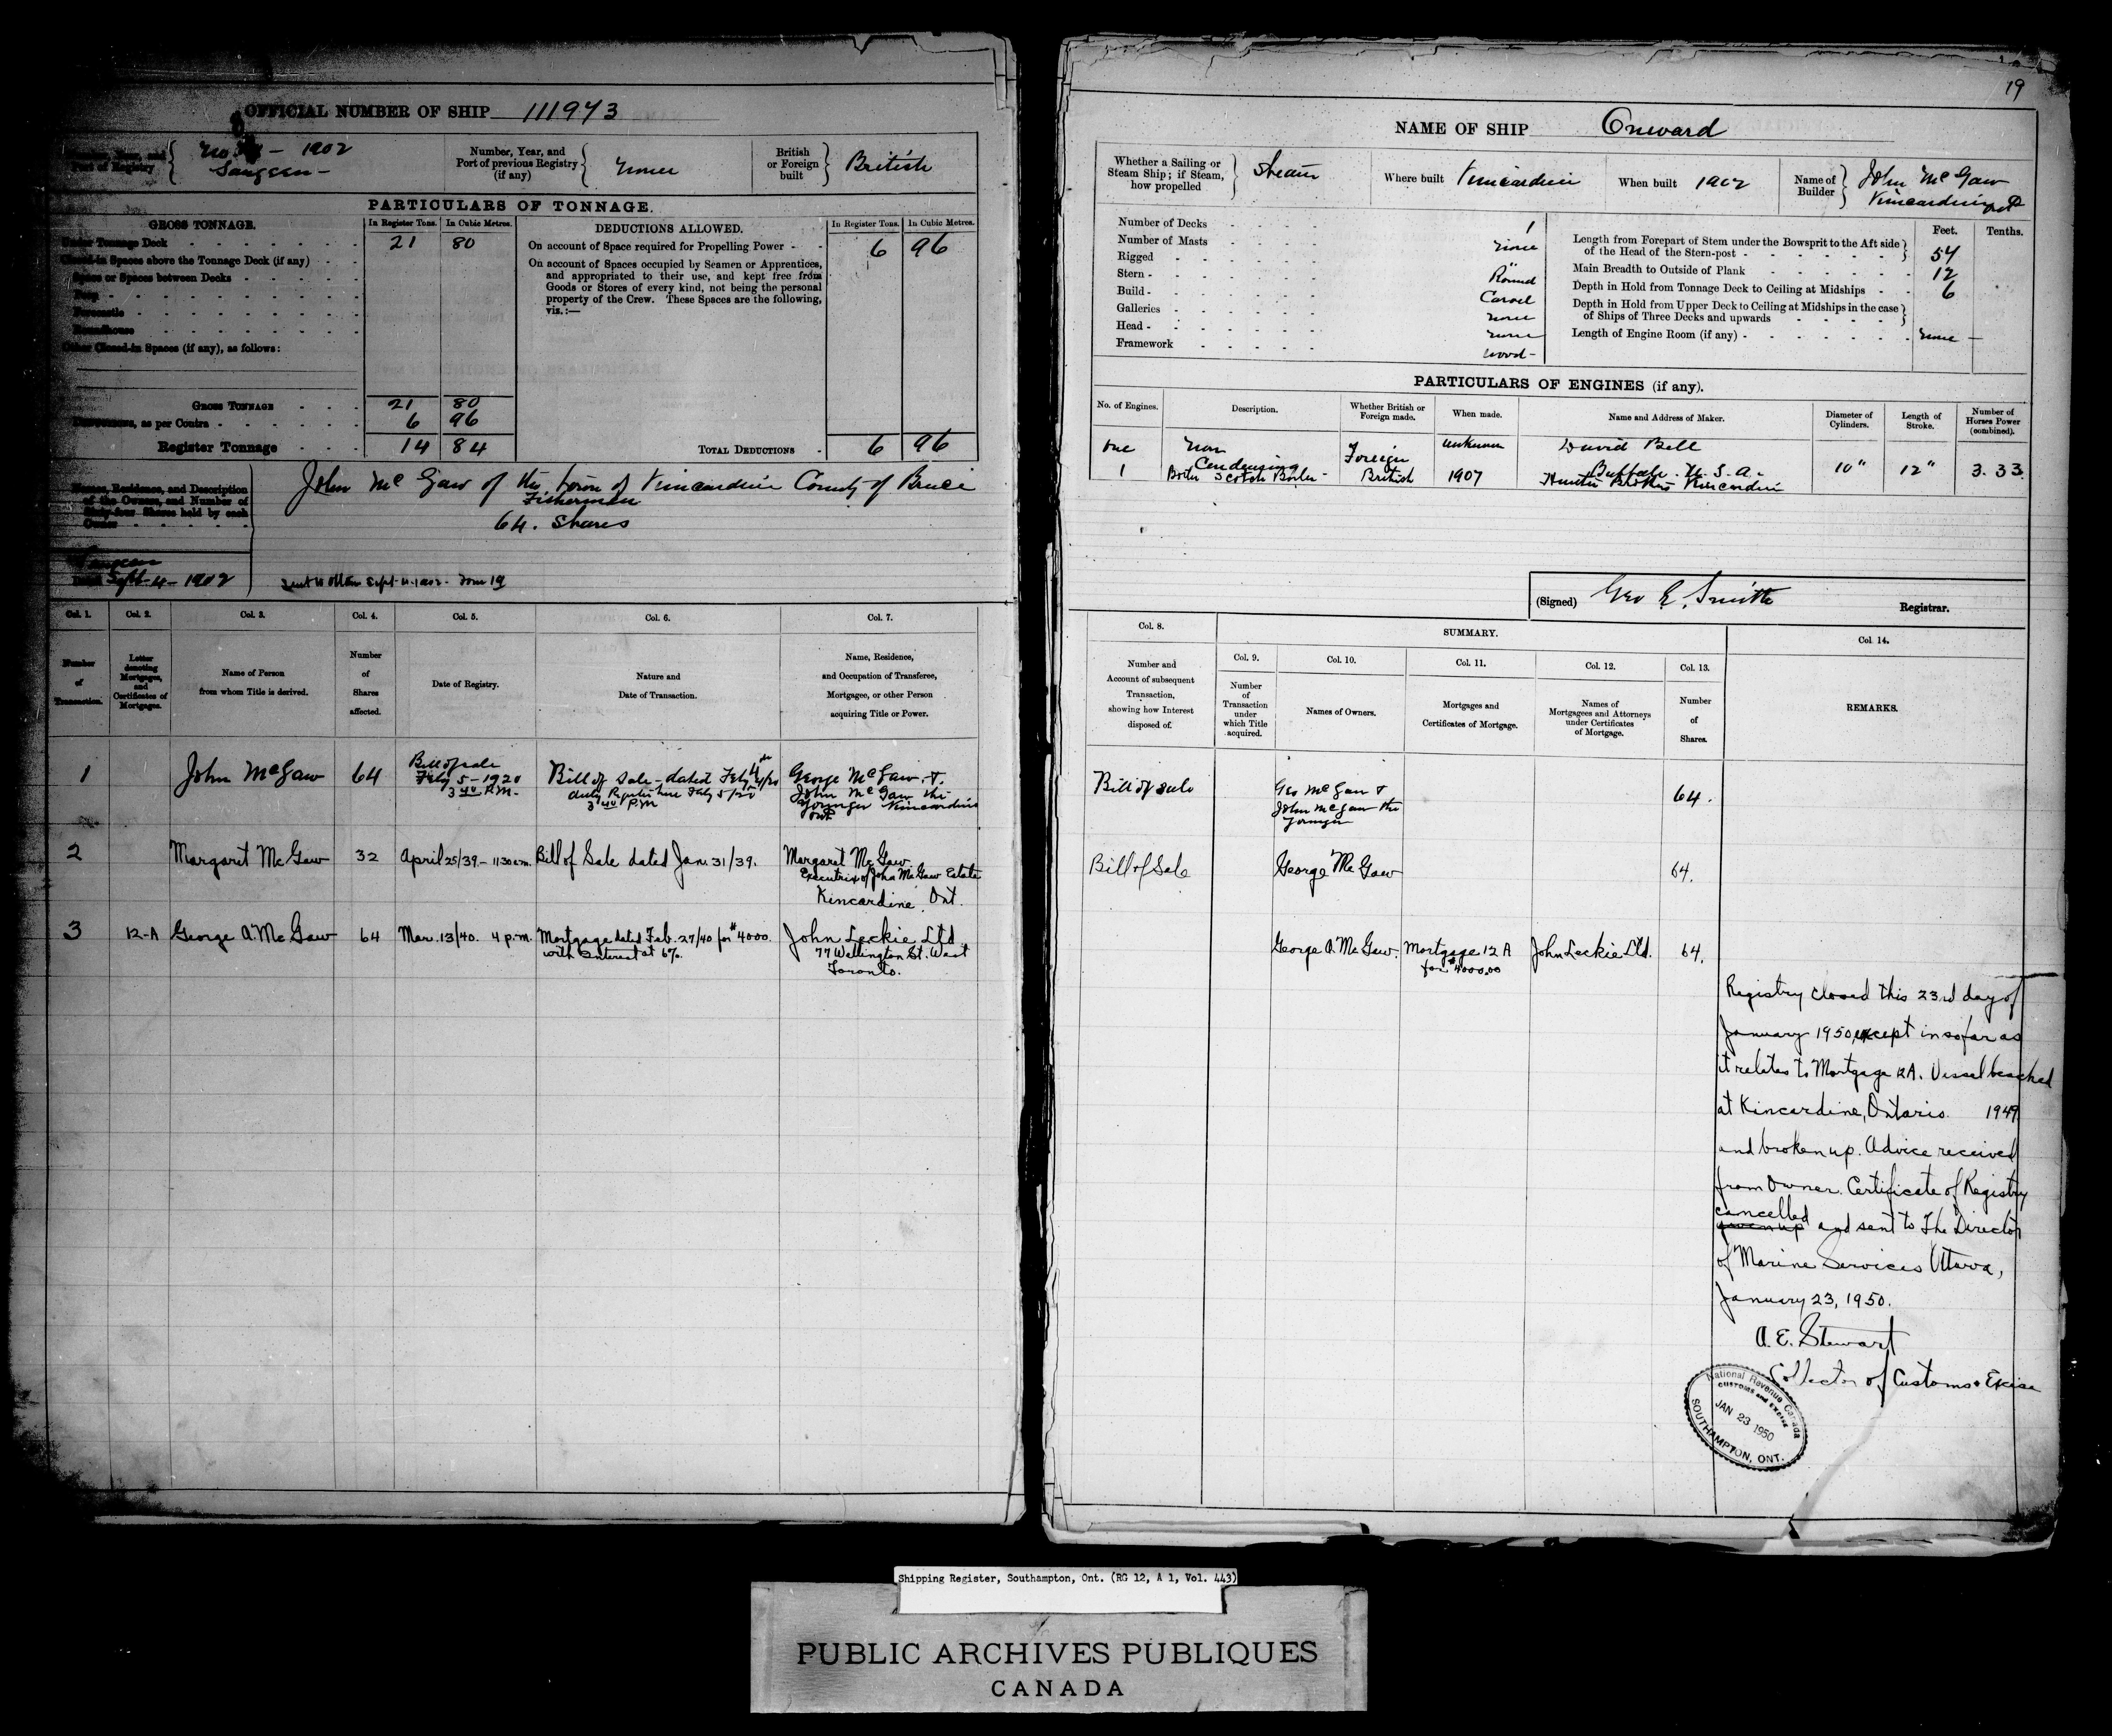 19
OFFICIAL NUMBER OF SHIP 111943
No - 1902
Port of Registry
Saugeen -
Number, Year, and
Port of previous Registry
(if any)
None
British
or Foreign
built
British
PARTICULARS OF TONNAGE.
GROSS TONNAGE.
In Register Tons.
In Cubic Metres.
DEDUCTIONS ALLOWED.
In Register Tons.
In Cubic Metres.
Under Tonnage Deck 21 80
Closed-in Spaces above the Tonnage Deck (if any)
Space or Spaces between Decks
Poop
Forecastle
Roundhouse
Other Closed-in Spaces (if any), as follows:
On account of Space required for Propelling Power 6 96
On account of Spaces occupied by Seamen or Apprentices,
and appropriated to their use, and kept free from
Goods or Stores of every kind, not being the personal
property of the Crew. These Spaces are the following,
viz.:—
GROSS TONNAGE 21 80
Deductions, as per Contra 6 96
Register Tonnage 14 84
TOTAL DEDUCTIONS 6 96
Names, Residence, and Description
of the Owners, and Number of
Sixty-four Shares held by each
Owner
John McGaw of the town of Kincardine County of Bruce
Fisherman
64. Shares
Saugeen
Dated Sept-4-1902
Sent to Ottawa Sept-4-1902- Form 19
NAME OF SHIP Onward
Whether a Sailing or
Steam Ship; if Steam,
how propelled
Steam
Where built Kincardine
When built 1902
Name of
Builder
John McGaw
Kincardine Ont
Number of Decks 1
Number of Masts None
Rigged "
Stern Round
Build Carvel
Galleries none
Head none
Framework wood-
Feet.
Tenths.
Length from Forepart of Stem under the Bowsprit to the Aft side
of the Head of the Stern-post 54
Main Breadth to Outside of Plank 12
Depth in Hold from Tonnage Deck to Ceiling at Midships 6
Depth in Hold from Upper Deck to Ceiling at Midships in the case
of Ships of Three Decks and upwards
Length of Engine Room (if any) none —
PARTICULARS OF ENGINES (if any).
No. of Engines.
Description.
Whether British or
Foreign made.
When made.
Name and Address of Maker.
Diameter of
Cylinders.
Length of
Stroke.
Number of
Horses Power
(combined).
one
Non
Condensing
Foreign
unknown
David Bell
Buffalo. U.S.A.
10"
12"
3.33
1
Boiler Scotch Boiler
British
1907
Hunter Brothers Kincardine
(Signed) Geo E. Smith Registrar.
Col. 1.
Col. 2.
Col. 3.
Col. 4.
Col. 5.
Col. 6.
Col. 7.
Number
of
Transaction.
Letter
denoting
Mortgages,
and
Certificates of
Mortgages.
Name of Person
from whom Title is derived.
Number
of
Shares
affected.
Date of Registry.
Nature and
Date of Transaction.
Name, Residence,
and Occupation of Transferee,
Mortgagee, or other Person
acquiring Title or Power.
1
John McGaw
64
Bill of sale
Feby 5-1920
3 40 P.M.
Bill of Sale - dated Feby 4th/20
duly Registered here Feby 5/20
3 40 P.M
George McGaw +
John McGaw the
Younger Kincardine
Ont
2
Margaret McGaw
32
April 25/39.- 11 30 a.m.
Bill of Sale dated Jan. 31/39.
Margaret McGaw
Executrix of John McGaw Estate
Kincardine, Ont.
3
12-A
George A. McGaw
64
Mar. 13/40. 4 p.m.
Mortgage dated Feb. 27/40 for $4000.
with interest at 6%.
John Leckie Ltd
77 Wellington St. West
Toronto.
Col. 8.
SUMMARY.
Col. 14.
Number and
Account of subsequent
Transaction,
showing how Interest
disposed of.
Col. 9.
Col. 10.
Col. 11.
Col. 12.
Col. 13.
Number
of
Transaction
under
which Title
acquired.
Names of Owners.
Mortgages and
Certificates of Mortgage.
Names of
Mortgagees and Attorneys
under Certificates
of Mortgage.
Number
of
Shares.
REMARKS.
Bill of sale
Geo McGaw +
John McGaw the
Younger
64.
Bill of Sale
George McGaw
64.
George A. McGaw.
Mortgage 12 A
for $4000.00
John Leckie Ltd.
64.
Registry closed this 23rd day of
January 1950, except in so far as
it relates to Mortgage 12A. Vessel beached
at Kincardine, Ontario 1949
and broken up. Advice received
from Owner. Certificate of Registry
cancelled
given up and sent to The Director
of Marine Services Ottawa,
January 23, 1950.
A. E. Stewart
Collector of Customs & Excise
National Revenue Canada
CUSTOMS and EXCISE
JAN 23 1950
SOUTHAMPTON, ONT.
Shipping Register, Southampton, Ont. (RG 12, A 1, Vol. 443)
PUBLIC ARCHIVES PUBLIQUES
CANADA